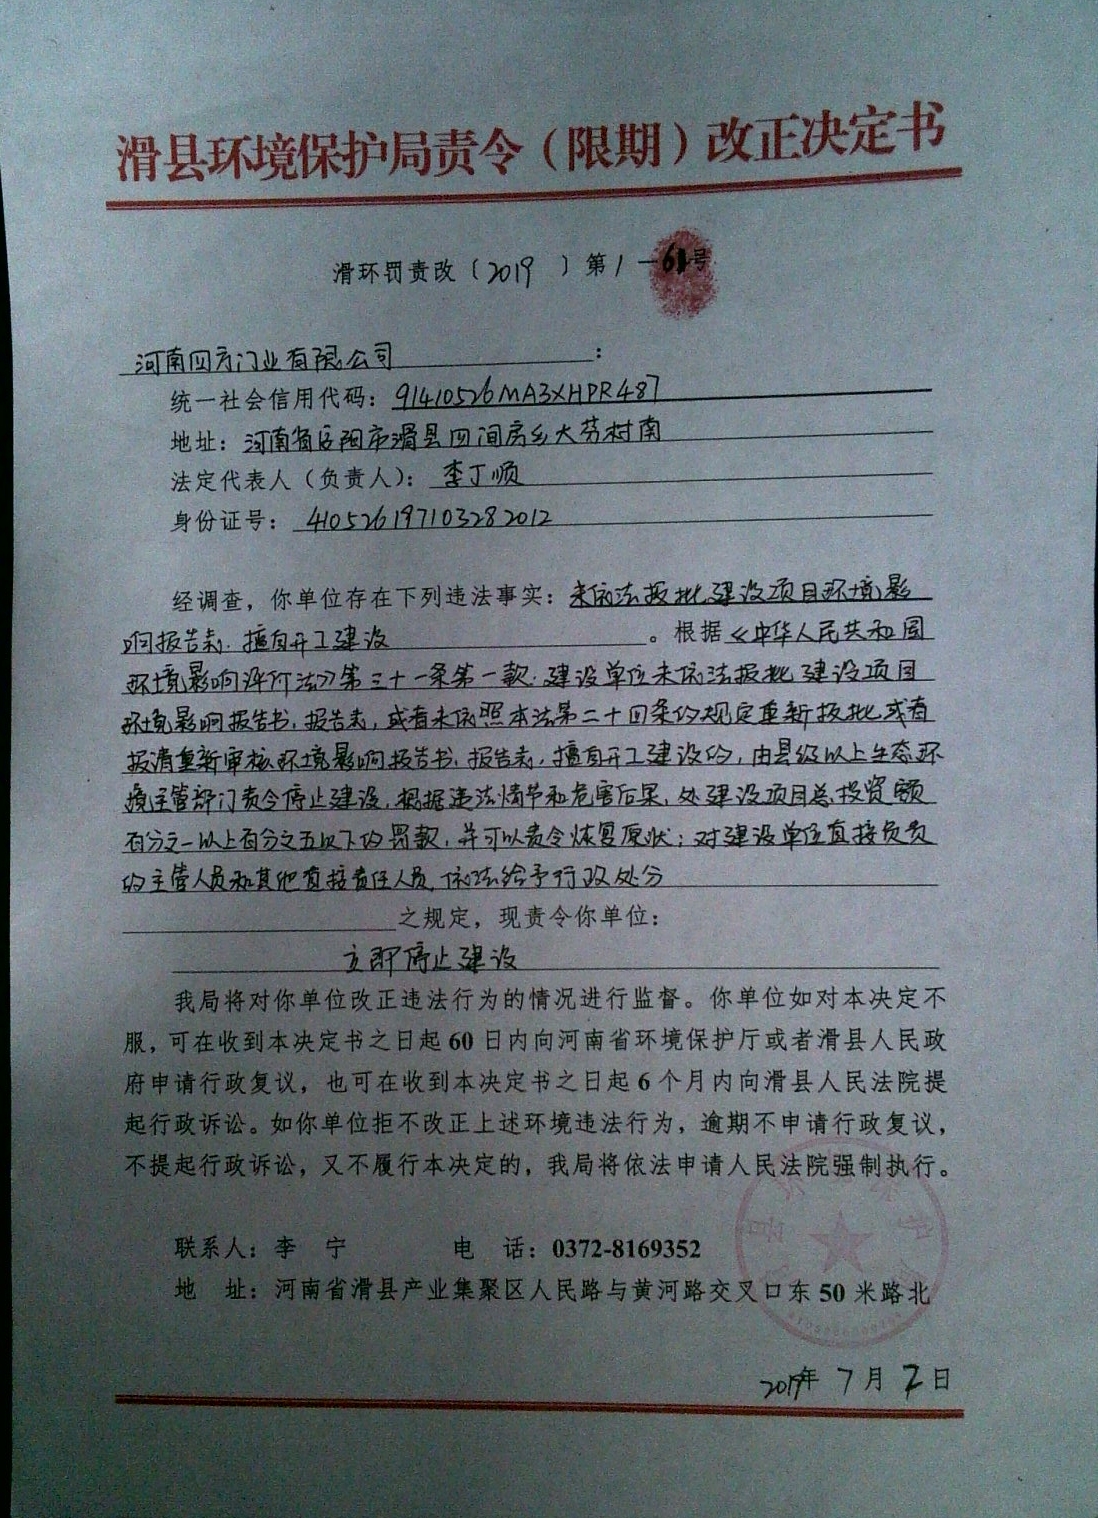 滑县环境保护局责令（限期）改正决定书
滑环罚责改〔2019 〕第1－61号
河南四方门业有限公司：
统一社会信用代码：91410526MA3XHPR487
地址：河南省安阳市滑县四间房乡大芬村南
法定代表人（负责人）：李丁顺
身份证号：410526197103282012
经调查，你单位存在下列违法事实：未依法报批建设项目环境影
响报告表，擅自开工建设。根据《中华人民共和国
环境影响评价法》第三十一条第一款：建设单位未依法报批建设项目
环境影响报告书、报告表，或者未依照本法第二十四条的规定重新报批或者
报请重新审核环境影响报告书、报告表，擅自开工建设的，由县级以上生态环
境主管部门责令停止建设，根据违法情节和危害后果，处建设项目总投资额
百分之一以上百分之五以下的罚款，并可以责令恢复原状；对建设单位直接负责
的主管人员和其他直接责任人员，依法给予行政处分
之规定，现责令你单位：
立即停止建设
我局将对你单位改正违法行为的情况进行监督。你单位如对本决定不
服，可在收到本决定书之日起60日内向河南省环境保护厅或者滑县人民政
府申请行政复议，也可在收到本决定书之日起6个月内向滑县人民法院提
起行政诉讼。如你单位拒不改正上述环境违法行为，逾期不申请行政复议，
不提起行政诉讼，又不履行本决定的，我局将依法申请人民法院强制执行。
联系人：李 宁 电 话：0372-8169352
地 址：河南省滑县产业集聚区人民路与黄河路交叉口东50米路北
2019年7月2日